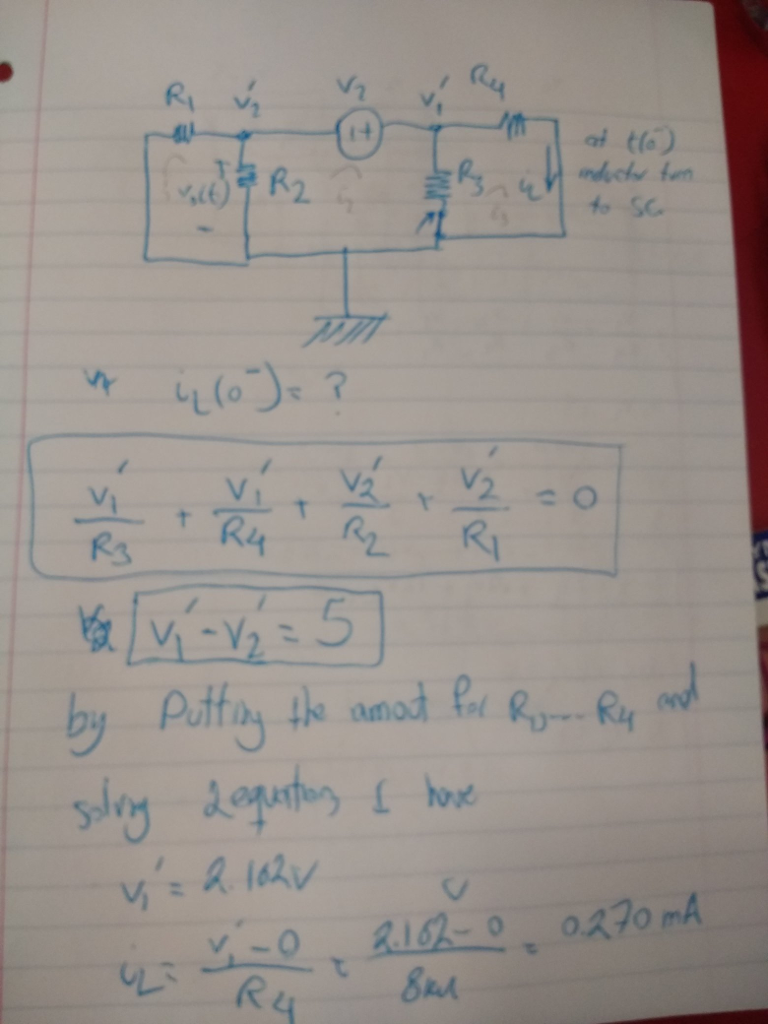 R1 v2' V2 v1' R4
+ vo(t) - R2 - + R3 iL
at t(0-)
inductor turn
to SC
iL(0-) = ?
v1'/R3 + v1'/R4 + v2'/R2 + v2'/R1 = 0
v1' - v2' = 5
by Putting the amout for R1, ... R4 and
solving 2 equations I have
v1' = 2.162v
iL = v1' - 0 / R4 = 2.162 - 0 / 8kΩ = 0.270 mA